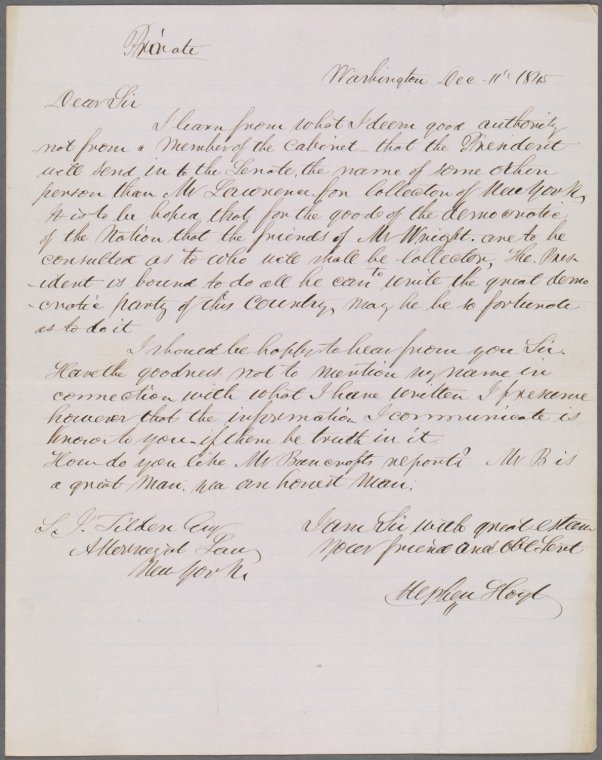 Private
Washington Dec 11th 1845
Dear Sir
I learn from what I deem good authority
not from a Member of the Cabinet that the President
will send in to the Senate, the name of some other
person than Mr Lawrence for Collector of New York,
It is to be hoped, that, for the good of the democratic
of the Nation that the friends of Mr Wright are to be
consulted as to who will shall be Collector, The Pres-
-ident is bound to do all he can to unite the great demo
-cratic party of this Country, may he be so fortunate
as to do it
I should be happy to hear from you Sir.
Have the goodness not to mention my name in
connection with what I have written I presume
however that the information I communicate is
known to you if there be truth in it
How do you like Mr Bancrofts report? Mr B is
a great man, an honest man.
S. J. Tilden Esq
Attorney at Law
New York.
I am Sir with great esteem
Your friend and Obt Servt
Stephen Hoyt